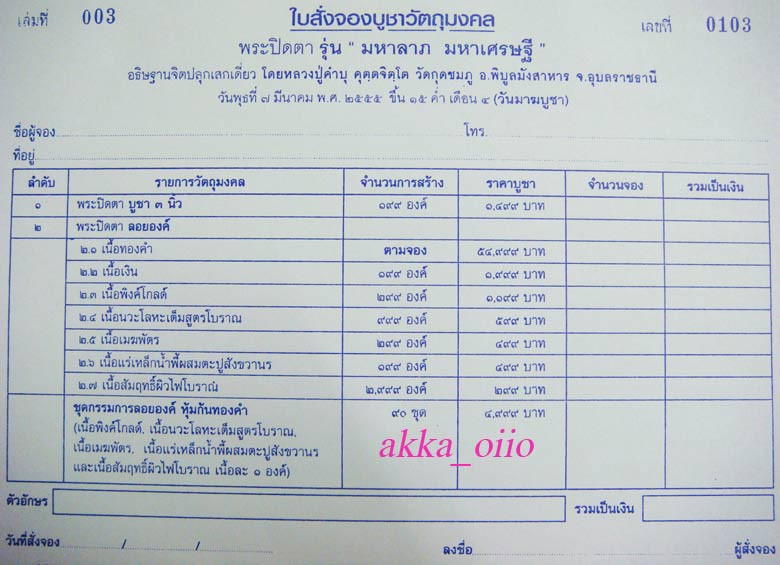 เล่มที่ 003
ใบสั่งจองบูชาวัตถุมงคล
เลขที่ 0103
พระปิดตา รุ่น " มหาลาภ มหาเศรษฐี "
อธิษฐานจิตปลุกเสกเดี่ยว โดยหลวงปู่คำบุ คุตฺตจิตฺโต วัดกุดชมภู อ.พิบูลมังสาหาร จ.อุบลราชธานี
วันพุธที่ ๗ มีนาคม พ.ศ. ๒๕๕๕ ขึ้น ๑๕ ค่ำ เดือน ๔ (วันมาฆบูชา)
ชื่อผู้จอง โทร.
ที่อยู่
ลำดับ รายการวัตถุมงคล จำนวนการสร้าง ราคาบูชา จำนวนจอง รวมเป็นเงิน
๑ พระปิดตา บูชา ๓ นิ้ว ๑๙๙ องค์ ๑,๔๙๙ บาท
๒ พระปิดตา ลอยองค์
๒.๑ เนื้อทองคำ ตามจอง ๕๔,๙๙๙ บาท
๒.๒ เนื้อเงิน ๑๙๙ องค์ ๑,๙๙๙ บาท
๒.๓ เนื้อพิงค์โกลด์ ๒๙๙ องค์ ๑,๑๙๙ บาท
๒.๔ เนื้อนวะโลหะเต็มสูตรโบราณ ๙๙๙ องค์ ๕๙๙ บาท
๒.๕ เนื้อเมฆพัตร ๒๙๙ องค์ ๔๙๙ บาท
๒.๖ เนื้อแร่เหล็กน้ำพี้ผสมตะปูสังขวานร ๑๙๙ องค์ ๔๙๙ บาท
๒.๗ เนื้อสัมฤทธิ์ผิวไฟโบราณ ๒,๙๙๙ องค์ ๒๙๙ บาท
ชุดกรรมการลอยองค์ หุ้มก้นทองคำ ๙๐ ชุด ๔,๙๙๙ บาท
(เนื้อพิงค์โกลด์, เนื้อนวะโลหะเต็มสูตรโบราณ,
เนื้อเมฆพัตร, เนื้อแร่เหล็กน้ำพี้ผสมตะปูสังขวานร
และเนื้อสัมฤทธิ์ผิวไฟโบราณ เนื้อละ ๑ องค์)
akka_oiio
ตัวอักษร รวมเป็นเงิน
วันที่สั่งจอง / / ลงชื่อ ผู้สั่งจอง